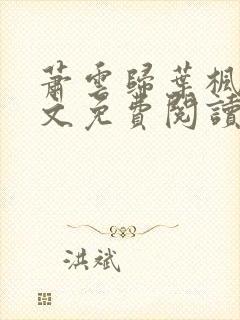 蕭雲歸葉楓
文免費閱讀
洪斌